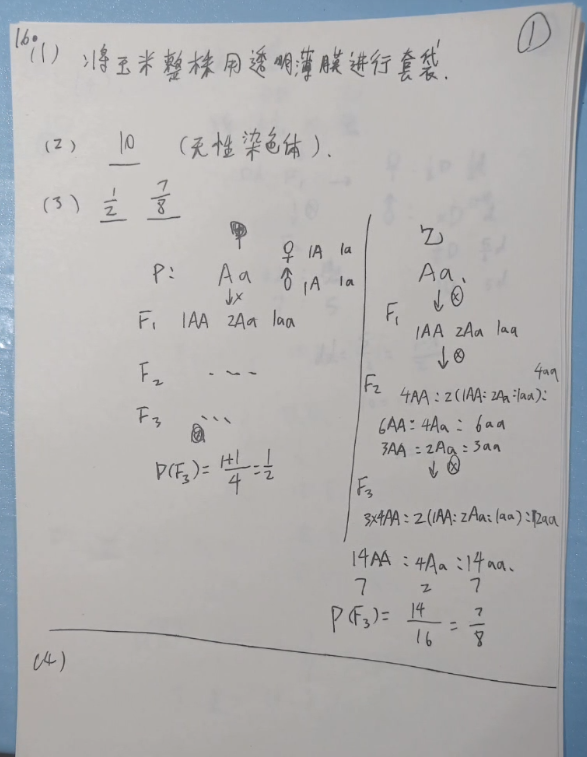 ①
16.(1) 将玉米整株用透明薄膜进行套袋.
(2) 10 (无性染色体).
(3) 1/2 7/8
甲
♀ 1A 1a
P: Aa ♂ 1A 1a
↓×
F₁ 1AA 2Aa 1aa
F₂ ----
F₃ ...
P(F₃)= (1+1)/4 = 1/2
乙
Aa.
↓⊗
F₁ 1AA 2Aa 1aa
↓⊗
F₂ 4AA : 2(1AA:2Aa:1aa): 4aa
6AA: 4Aa: 6aa
3AA:2Aa:3aa
↓⊗
F₃
3×4AA:2(1AA:2Aa:1aa):12aa
14AA:4Aa:14aa.
7 2 7
P(F₃)= 14/16 = 7/8
(4)